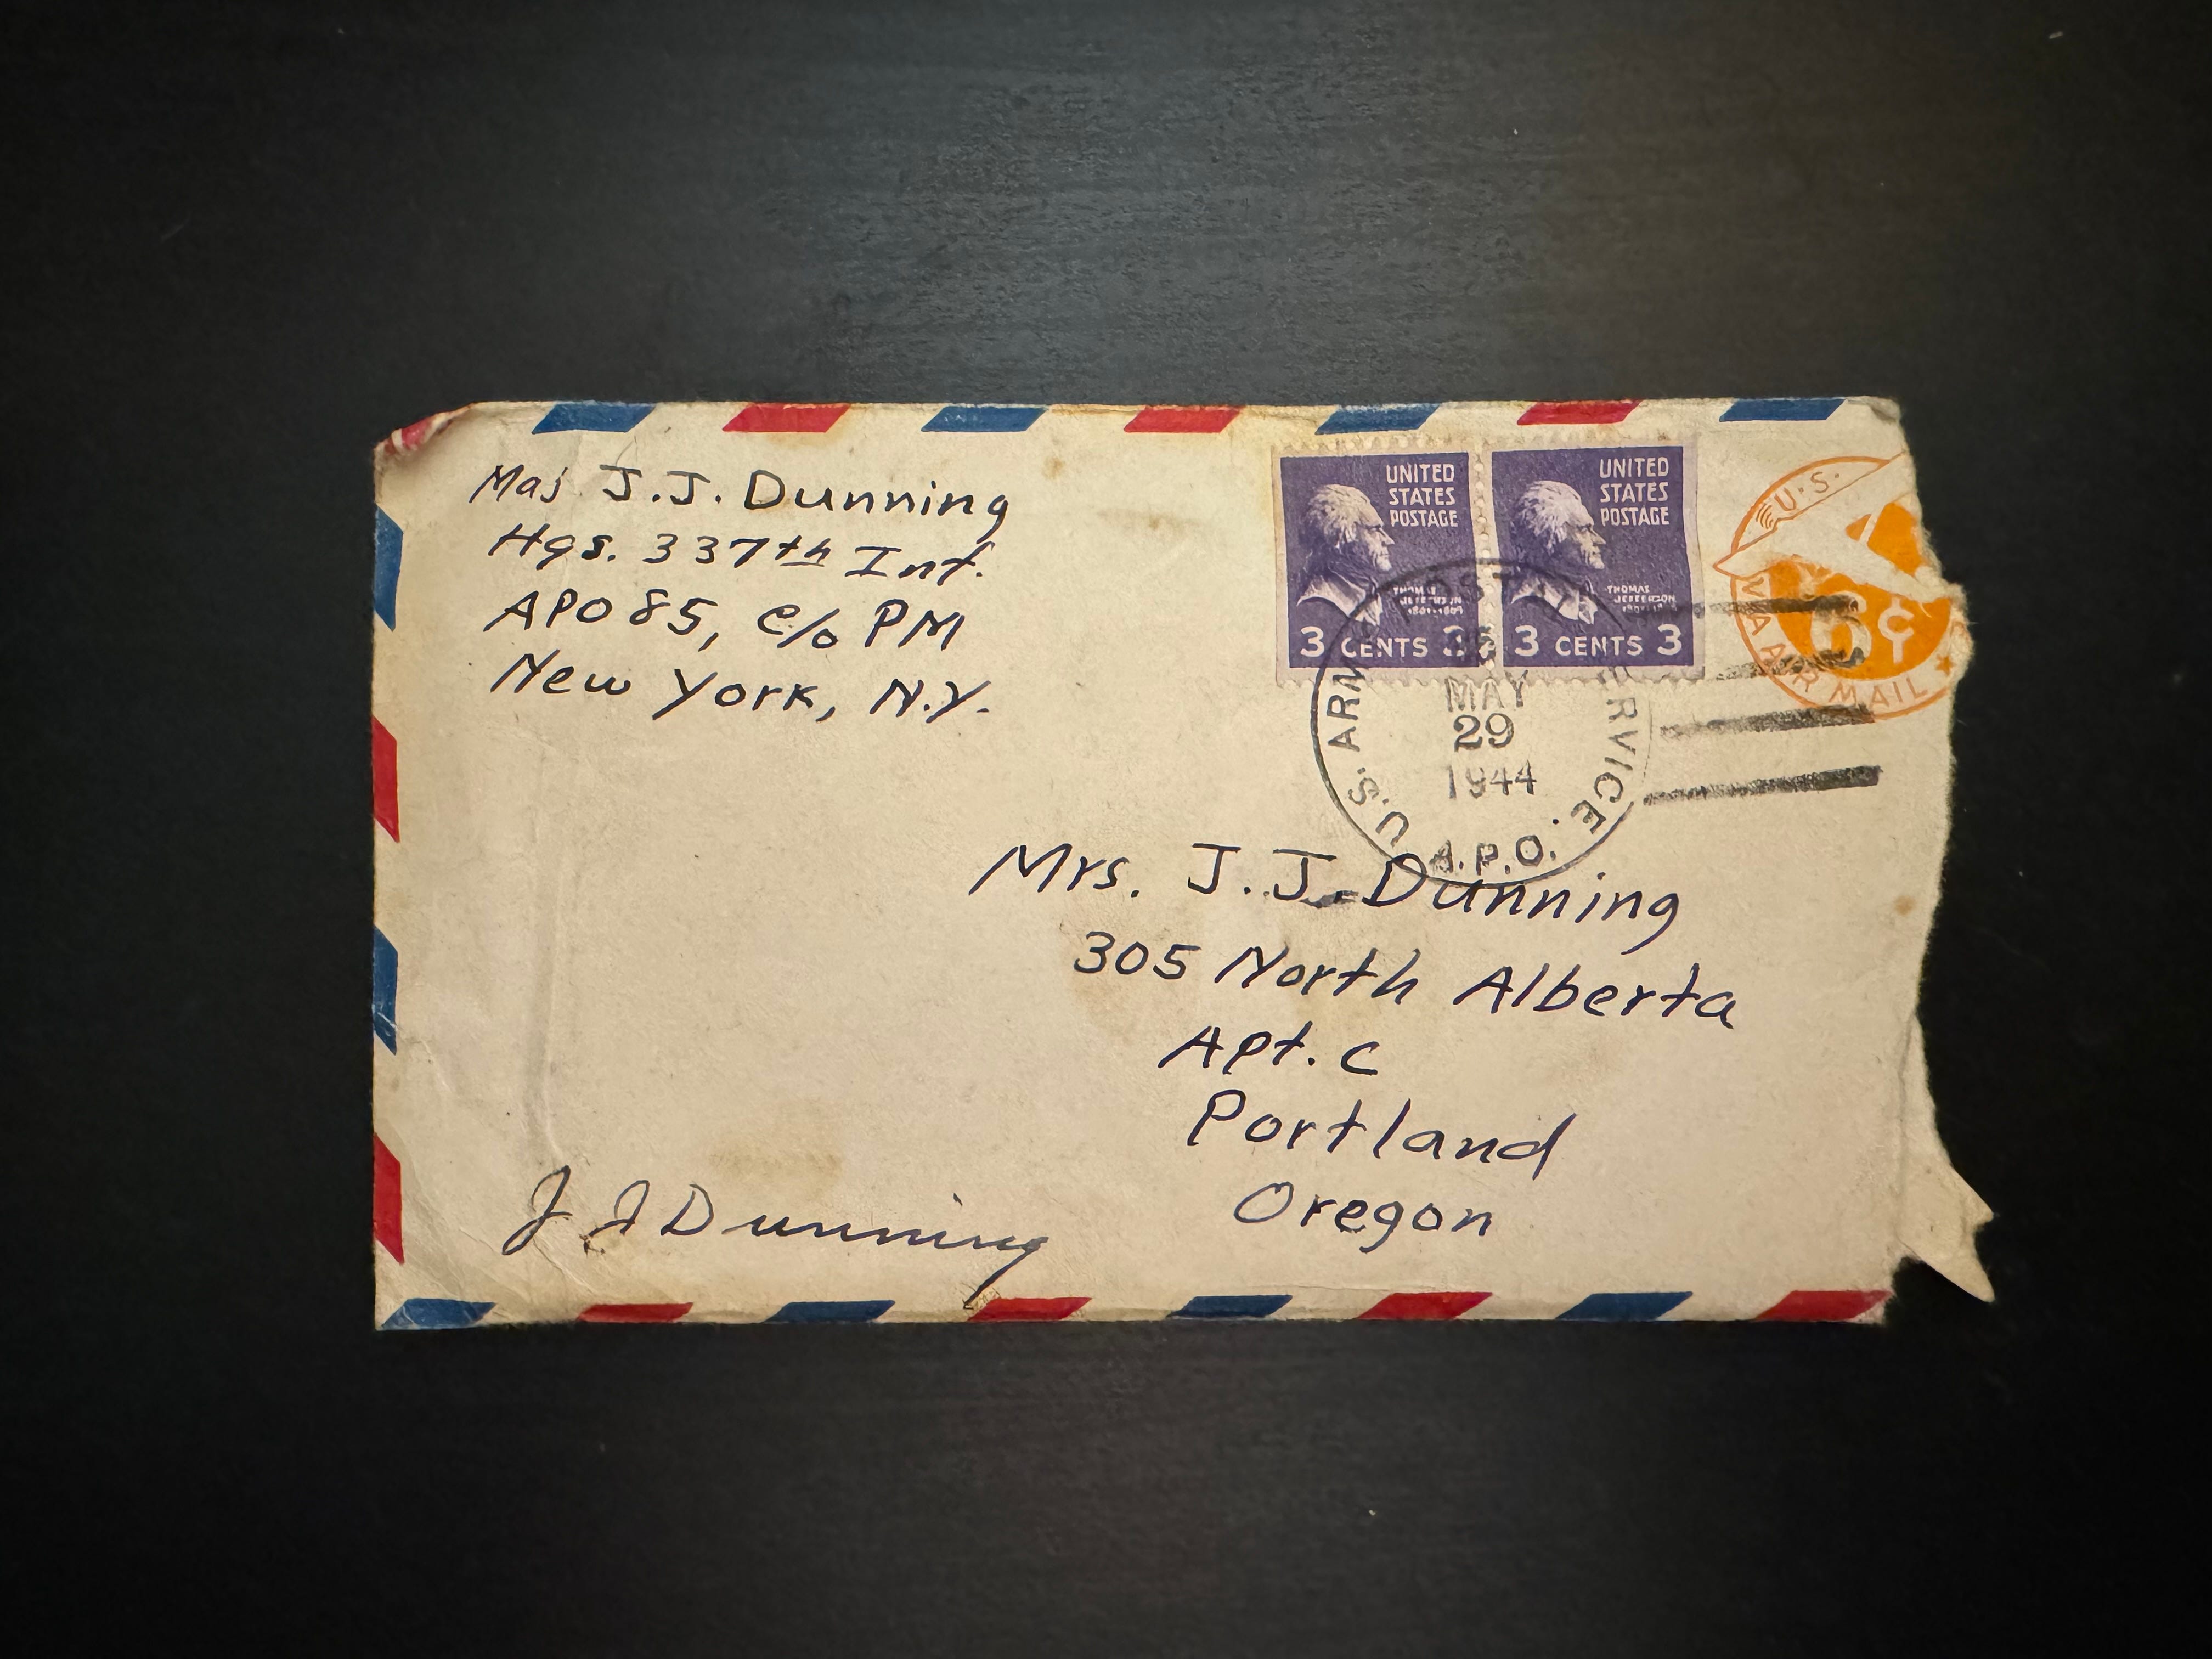 Maj J.J. Dunning
Hqs. 337th Inf.
APO 85, c/o PM
New York, N.Y.
UNITED STATES POSTAGE
THOMAS JEFFERSON
3 CENTS 3
UNITED STATES POSTAGE
THOMAS JEFFERSON
3 CENTS 3
U.S.
6¢
VIA AIR MAIL
U.S. ARMY POSTAL SERVICE
MAY
29
1944
A.P.O.
Mrs. J.J. Dunning
305 North Alberta
Apt. C
Portland
Oregon
J J Dunning